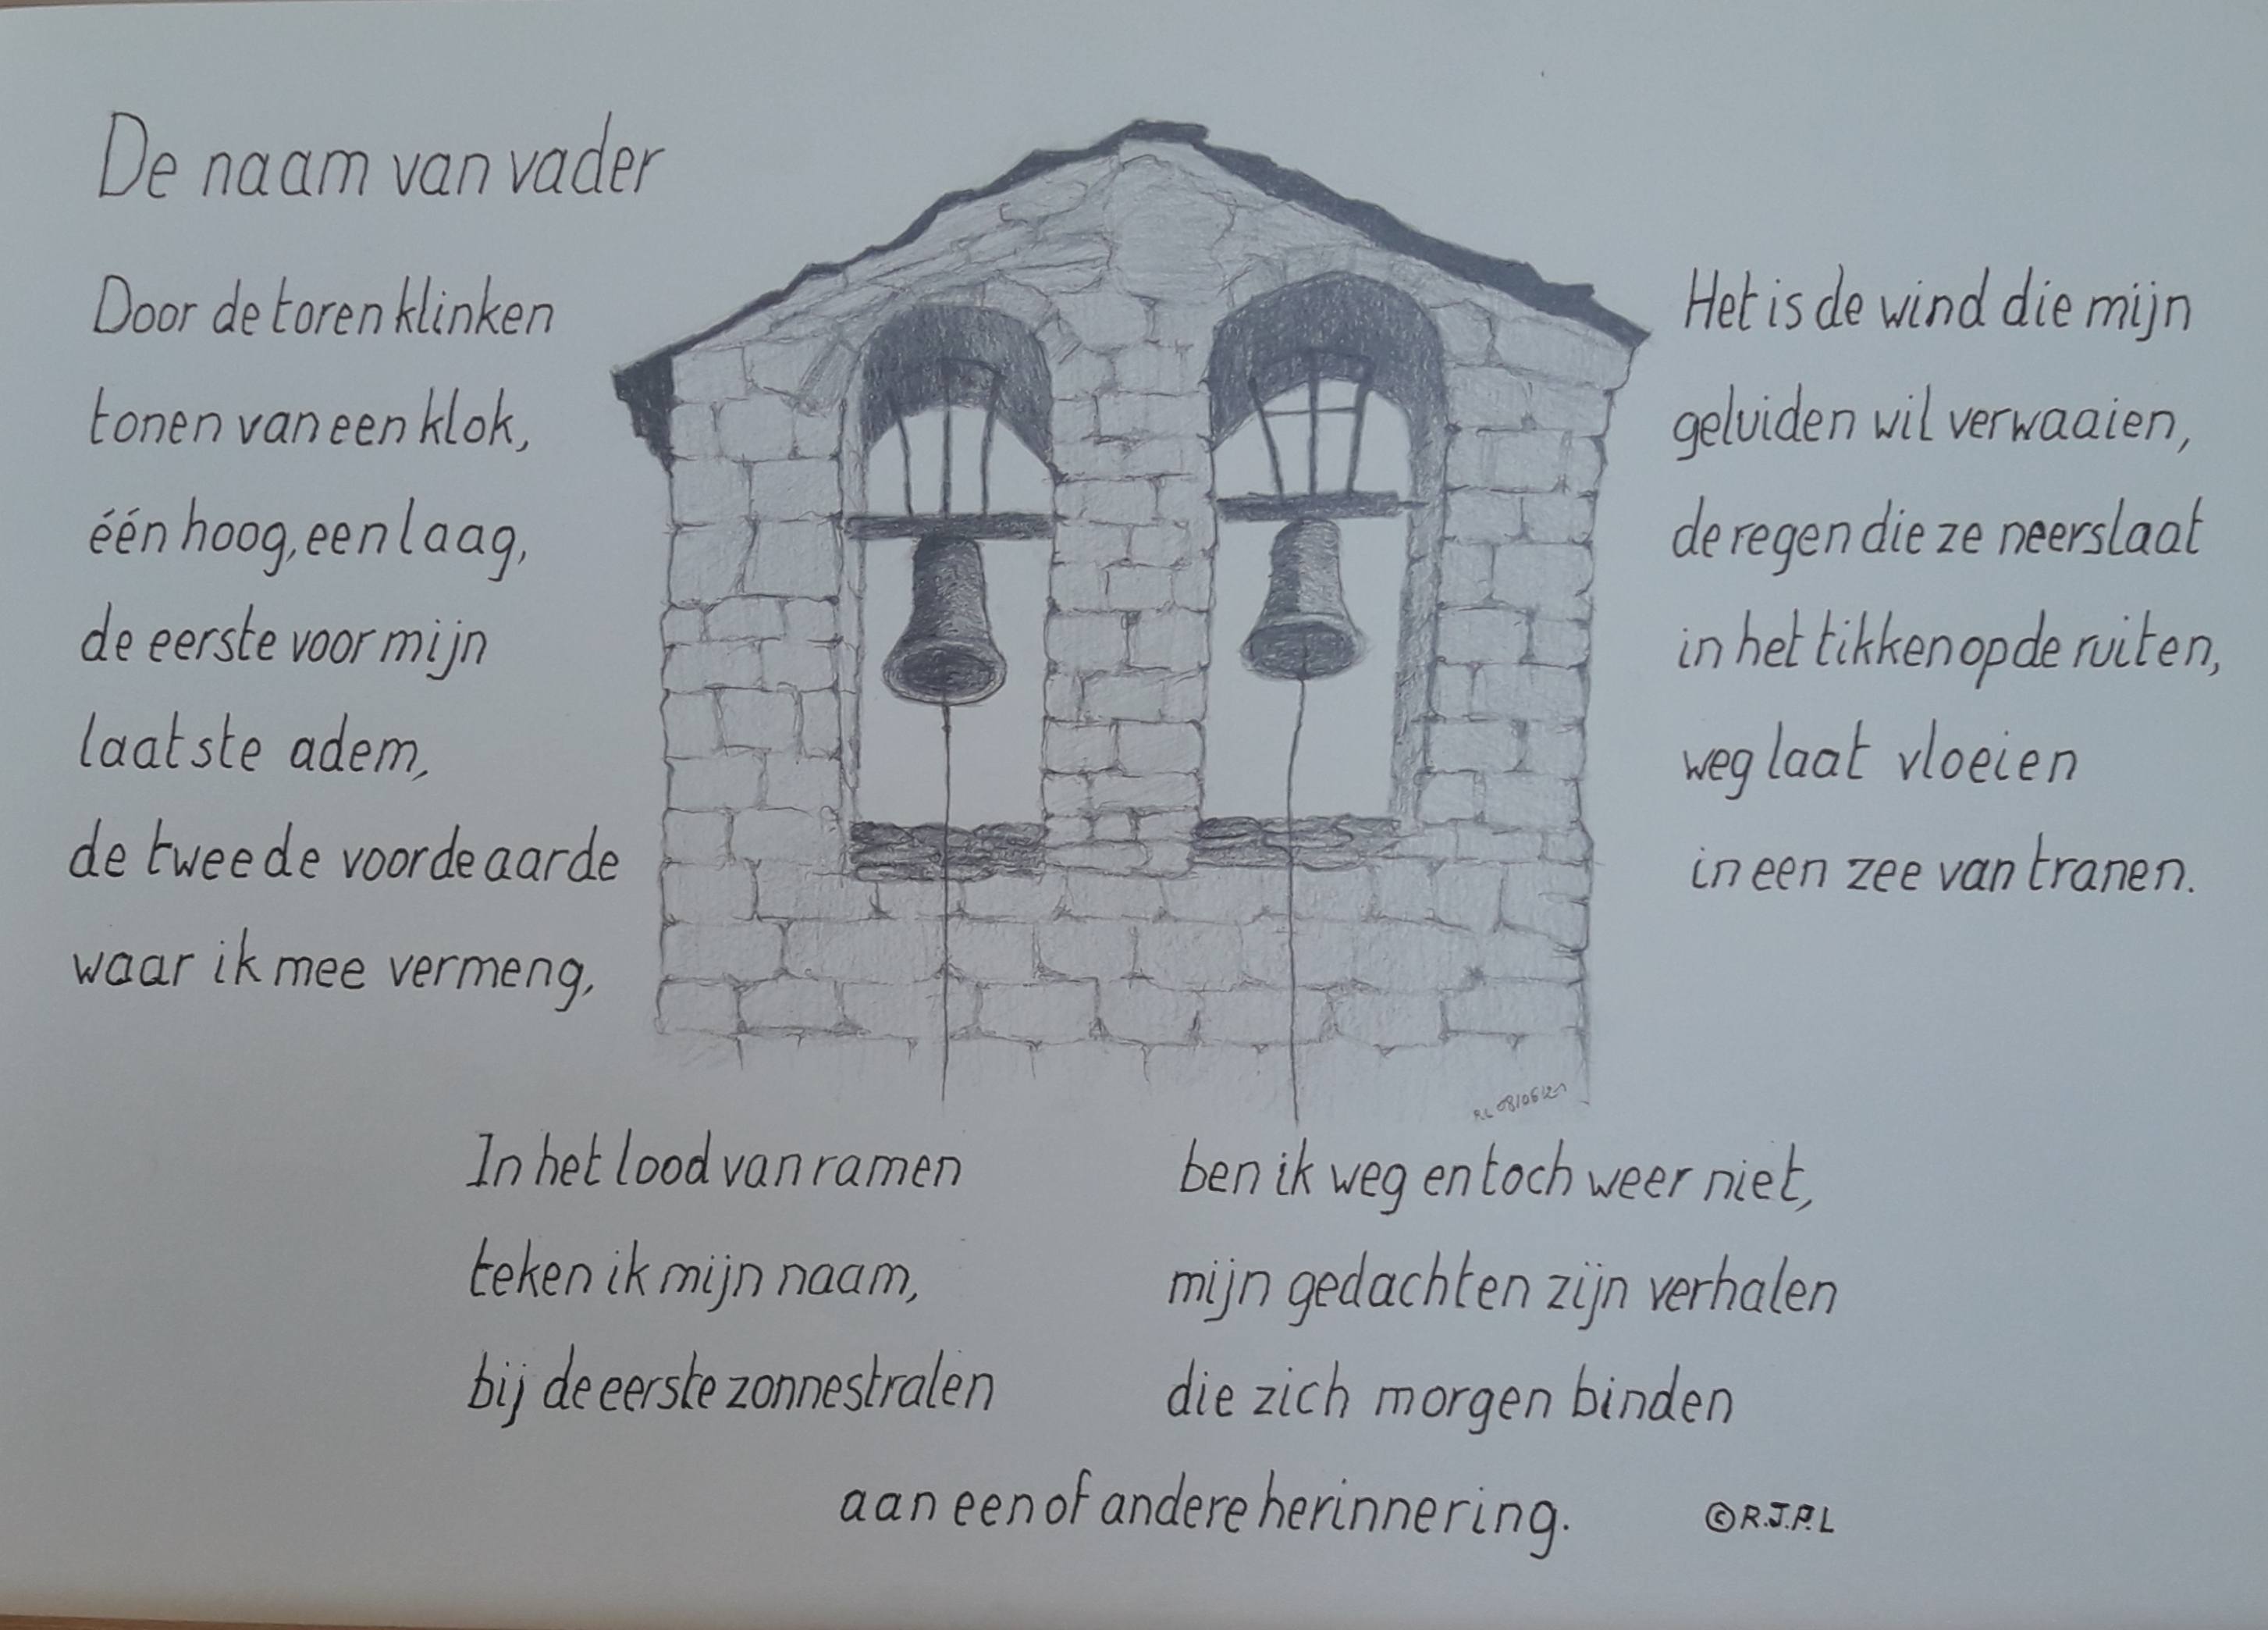 De naam van vader
Door de toren klinken
tonen van een klok,
één hoog, een laag,
de eerste voor mijn
laatste adem,
de tweede voor de aarde
waar ik mee vermeng,
Het is de wind die mijn
geluiden wil verwaaien,
de regen die ze neerslaat
in het tikken op de ruiten,
weg laat vloeien
in een zee van tranen.
In het lood van ramen
teken ik mijn naam,
bij de eerste zonnestralen
ben ik weg en toch weer niet,
mijn gedachten zijn verhalen
die zich morgen binden
aan een of andere herinnering.
©R.J.P.L